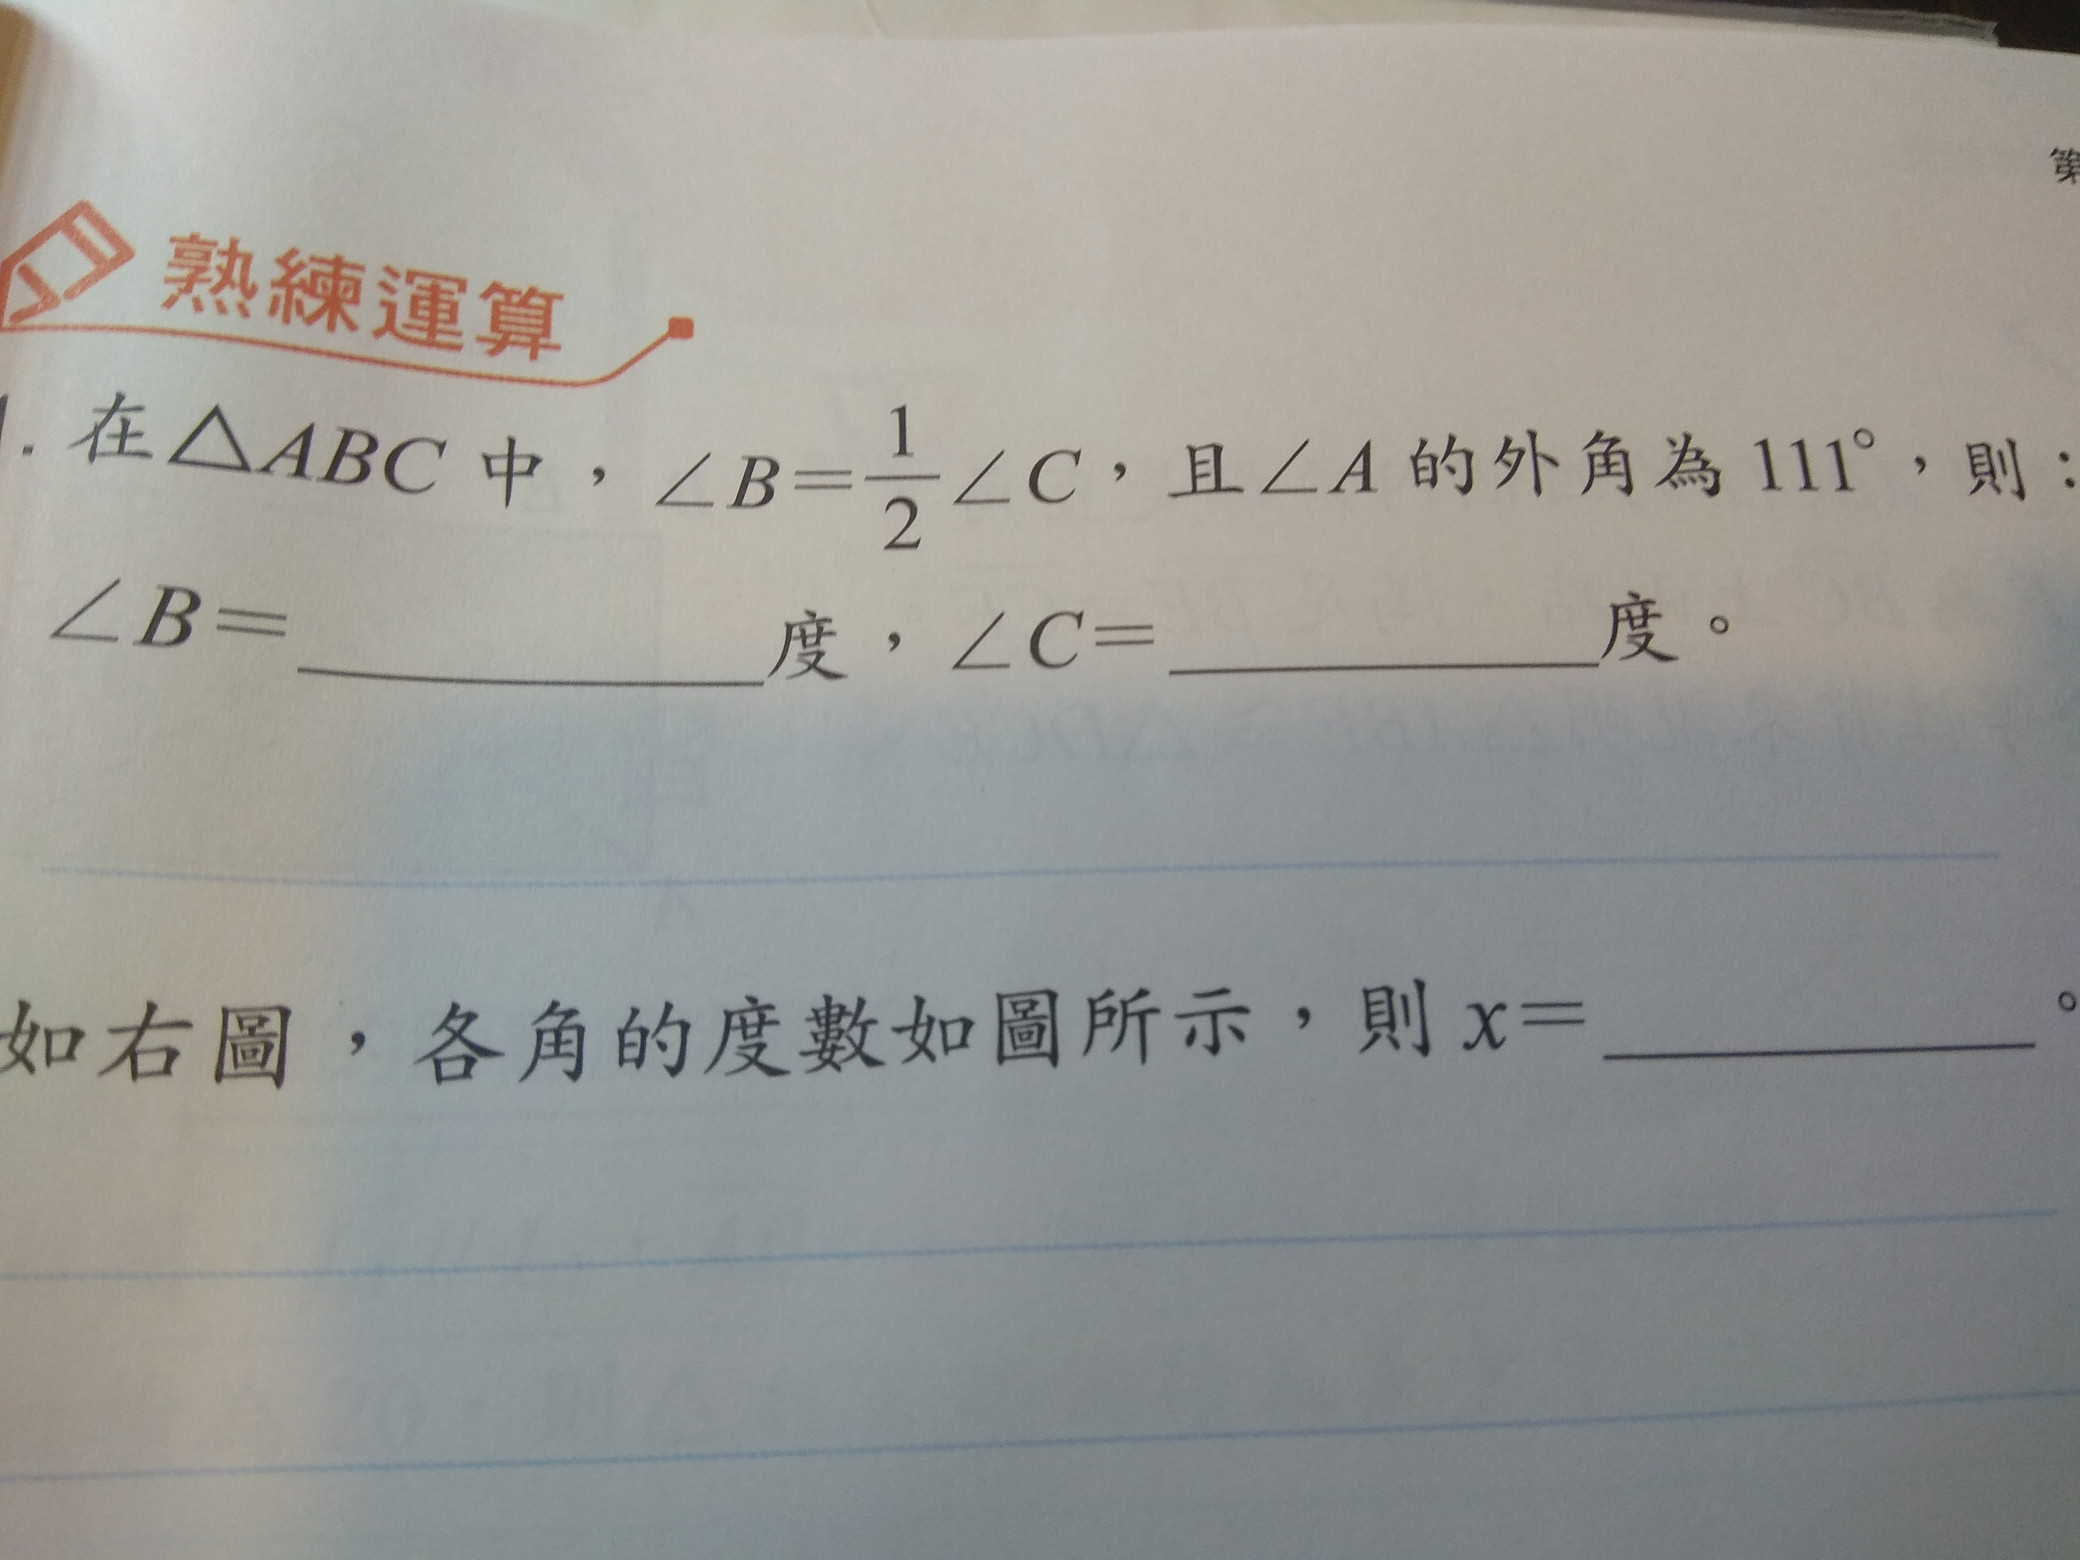 第
熟練運算
1. 在△ABC 中，∠B=\frac{1}{2}∠C，且∠A 的外角為 111°，則：
∠B=________度，∠C=________度。
如右圖，各角的度數如圖所示，則 x=________。